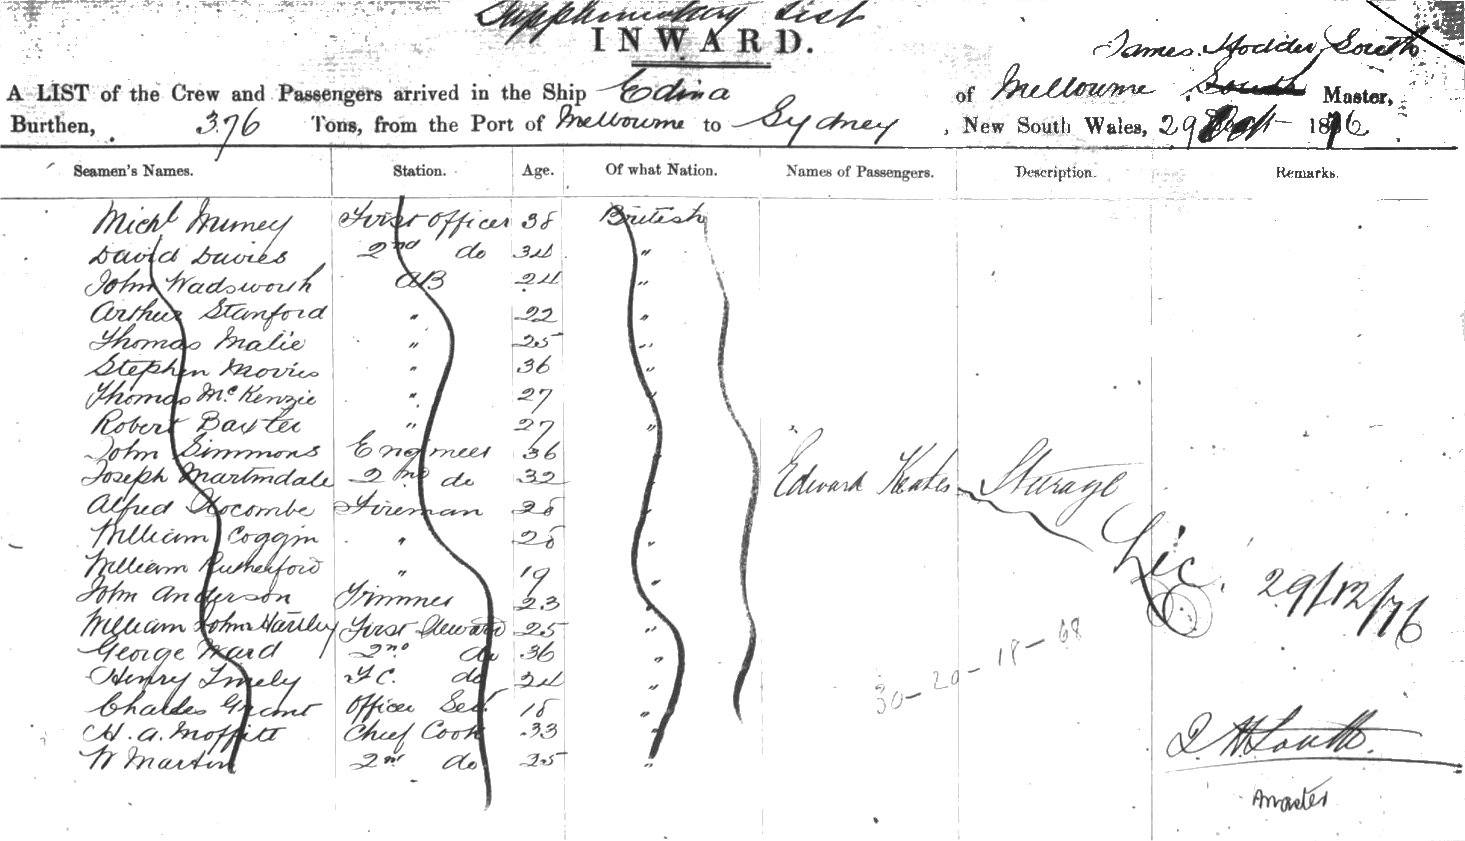 Supplimentary List
INWARD.
James Hodder South
A LIST of the Crew and Passengers arrived in the Ship Edina of Melbourne South Master,
Burthen, 376 Tons, from the Port of Melbourne to Sydney, New South Wales, 29 1876
Seamen's Names. Station. Age. Of what Nation. Names of Passengers. Description. Remarks.
Michl First Officer 38 British
David Davies 2nd do 34 "
John Wadsworth AB 24 "
Arthur Stanford " 22 "
Thomas Malie " 25 "
Stephen Movies " 36 "
Thomas McKenzie " 27 "
Robert Baxter " 27 "
John Simmons Engineer 36 "
Joseph Martindale 2nd do 32 "
Edward Keates Sturage
Alfred Fireman 28 "
William Coggin " 28 "
Lic. 29/12/76
William Rutherford " 19 "
John Anderson Trimmer 23 "
William John Hartley First Steward 25 "
George Ward 2nd do 36 "
30-20-18-68
Henry F.C. do 24 "
Charles Grant Officer 18 "
H. A. Moffitt Chief Cook 33 "
W Martin 2nd do 25 "
J H South.
Master